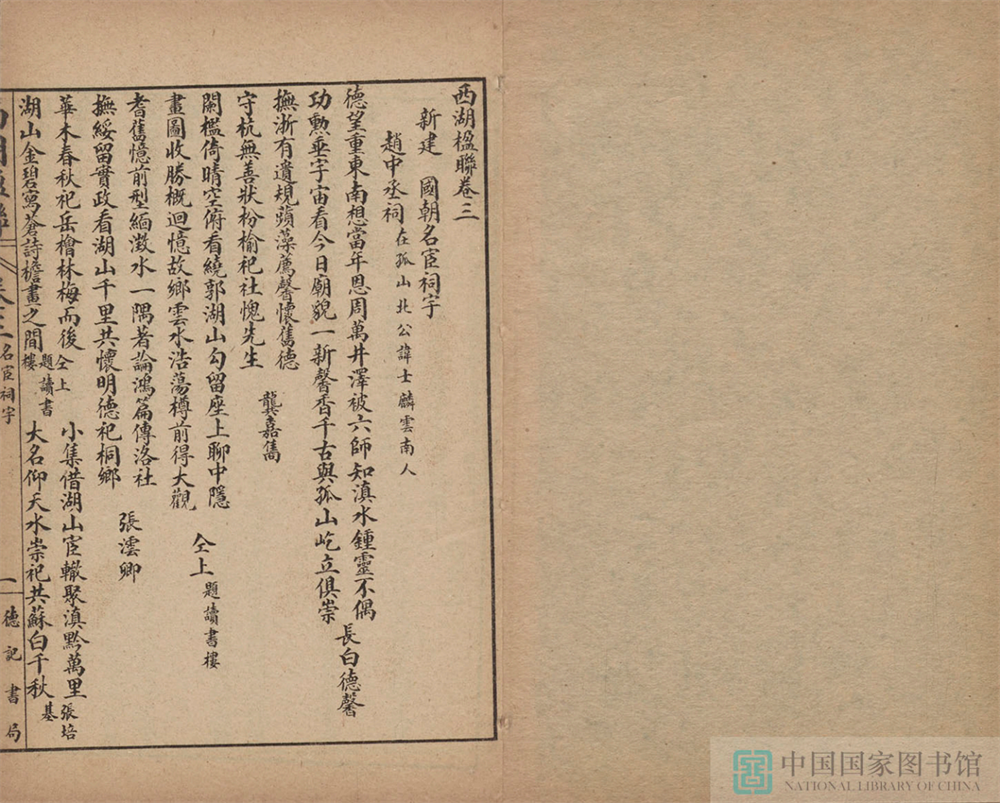 西湖楹聯卷三
新建　國朝名宦祠宇
趙中丞祠 在孤山北公諱士麟雲南人
德望重東南想當年恩周萬井澤被六師知滇水鍾靈不偶
功勲垂宇宙看今日廟貌一新馨香千古與孤山屹立俱崇 長白德馨
撫浙有遺規蘋藻薦馨懷舊德
守杭無善狀枌榆祀社愧先生 龔嘉儁
闌檻倚晴空俯看繞郭湖山勾留座上聊中隱
畫圖收勝概迴憶故鄉雲水浩蕩樽前得大觀 仝上 題讀書樓
耆舊憶前型緬澂水一隅著論鴻篇傳洛社
撫綏留實政看湖山千里共懷明德祀桐鄉 張澐卿
華木春秋祀岳檜林梅而後
湖山金碧寫蒼詩檐畫之間 仝上題讀書樓
小集借湖山宦轍聚滇黔萬里
大名仰天水崇祀共蘇白千秋 張培基
卷三 名宦祠宇 一 德記書局
中国国家图书馆
NATIONAL LIBRARY OF CHINA